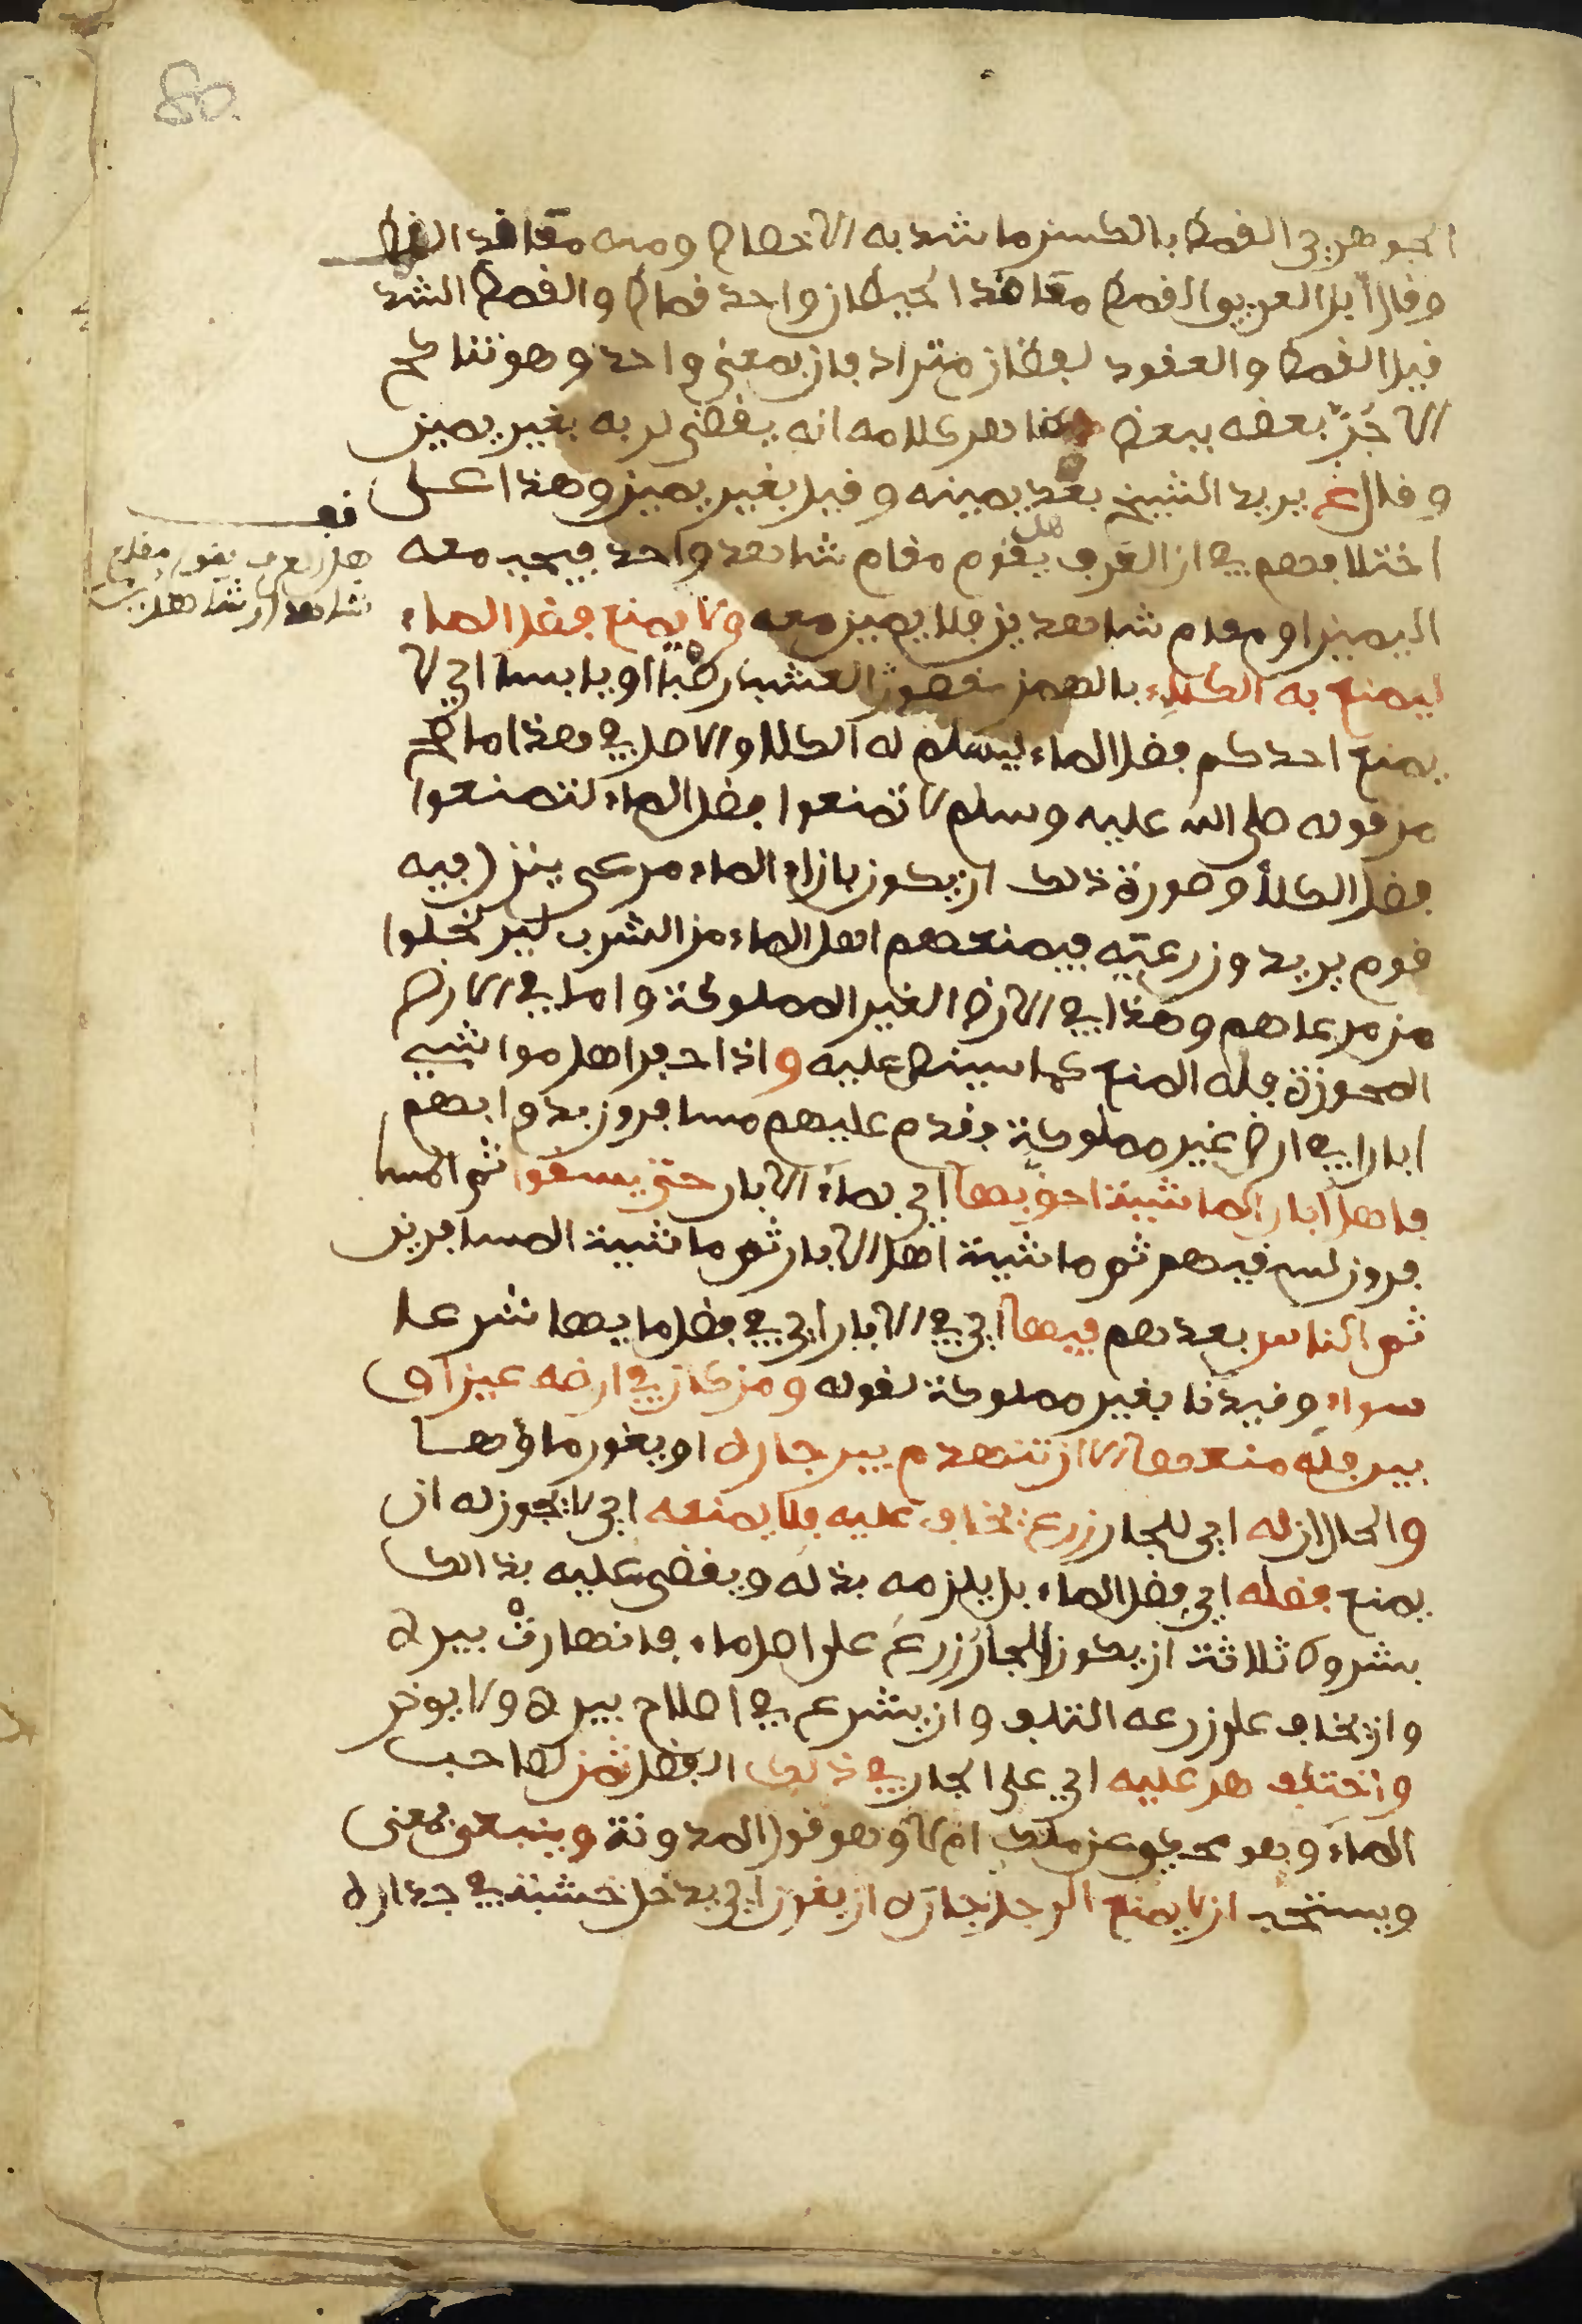 الجوهري القمط بالكسر ما شد به الاخصاص ومنه معاقد القمط
وقال ابن العربي القمط معاقد الحيطان واحد قماط والقمط الشد
قيل القمط والعقود لفظان مترادفان بمعنى واحد وهو تناكح
الاجر بعضه ببعض وظاهر كلامه انه يقضى له به بغير يمين
وقال غ يريد الشيخ بعد يمينه وقيل بغير يمين وهذا على
اختلافهم في ان العرف هل يقوم مقام شاهد واحد فيجب معه
اليمين او مقام شاهدين فلا يمين معه ولا يمنع فضل الماء
ليمنع به الكلاء بالهمز مقصور العشب رطبا او يابسا اي لا
يمنع احدكم فضل الماء ليسلم له الكلا والاصل في هذا ما صح
من قوله صلى الله عليه وسلم لا تمنعوا فضل الماء لتمنعوا
فضل الكلأ وصورة ذلك ان يكون بازاء الماء مرعى ينزل فيه
قوم يريدون رعيه فيمنعهم اهل الماء من الشرب ليرتحلوا
من مرعاهم وهذا في الارض الغير المملوكة واما في الارض
المحوزة فله المنع كما سينص عليه واذا حفر اهل مواشي
ابارا في ارض غير مملوكة وقدم عليهم مسافرون بدوابهم
فاهل ابار الماشية احق بها اي بماء الابار حتى يسقوا ثم المسا
فرون لسقيهم ثم ماشية اهل الابار ثم ماشية المسافرين
ثم الناس بعدهم فيها اي في الابار اي في فضل مايها شرعا
سواء وقيدنا بغير مملوكة لقوله ومن كان في ارضه عين او
بير فله منعها الا ان تنهدم بير جاره او يغور ماؤها
والحال ان له اي للجار زرع يخاف عليه فلا يمنعه اي لا يجوز له ان
يمنع فضله اي فضل الماء بل يلزمه بذله ويقضى عليه بذالك
بشروط ثلاثة ان يكون للجار زرع على اصل ماء فانهارت بيره
وان يخاف على زرعه التلف وان يشرع في اصلاح بيره ولا يوخر
واختلف هل عليه اي على الجار في ذلك الفضل ثمن لصاحب
الماء وهو محكي عن ملك ام لا وهو قول المدونة وينبغي بمعنى
ويستحب ان لا يمنع الرجل جاره ان يغرز اي يدخل خشبة في جداره
قف
هل العرف يقوم مقام
شاهد او شاهدين
80